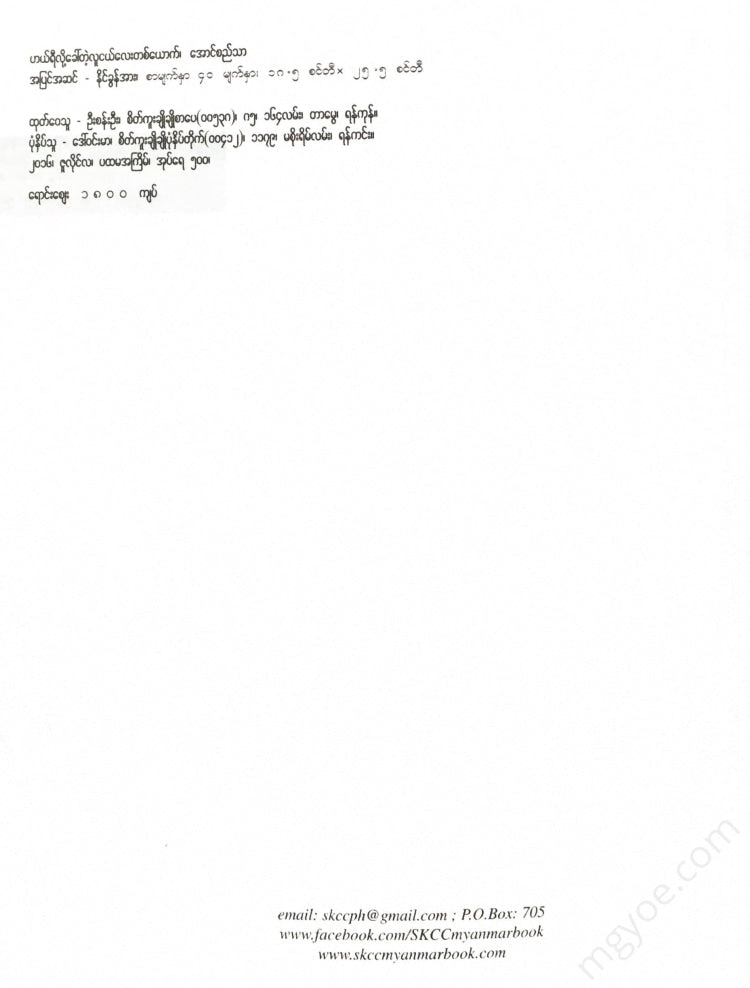 ဟယ်ရီလို့ခေါ်တဲ့လူငယ်လေးတစ်ယောက်၊ အောင်စည်သာ
အပြင်အဆင် - နိုင်ခွန်အား။ စာမျက်နှာ ၄၀ မျက်နှာ၊ ၁၈.၅ စင်တီ× ၂၅.၅ စင်တီ
ထုတ်ဝေသူ - ဦးစန်းဦး၊ စိတ်ကူးချိုချိုစာပေ(၀၀၅၃၈)၊ ၈၅၊ ၁၆၄လမ်း၊ တာမွေ၊ ရန်ကုန်။
ပုံနှိပ်သူ - ဒေါ်ဝင်းမာ၊ စိတ်ကူးချိုချိုပုံနှိပ်တိုက်(၀၀၄၁၂)၊ ၁၁၇၉၊ မစိုးရိမ်လမ်း၊ ရန်ကင်း။
၂၀၁၆၊ ဇူလိုင်လ၊ ပထမအကြိမ်၊ အုပ်ရေ ၅၀၀၊
ရောင်းဈေး ၁၈၀၀ ကျပ်
email: skccph@gmail.com ; P.O.Box: 705
www.facebook.com/SKCCmyanmarbook
www.skccmyanmarbook.com
mgyoe.com